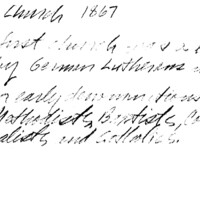 Church 1867
first church was a
by German Lutherans
early denominations
Methodists, Baptists, Co
alists and Catholics.